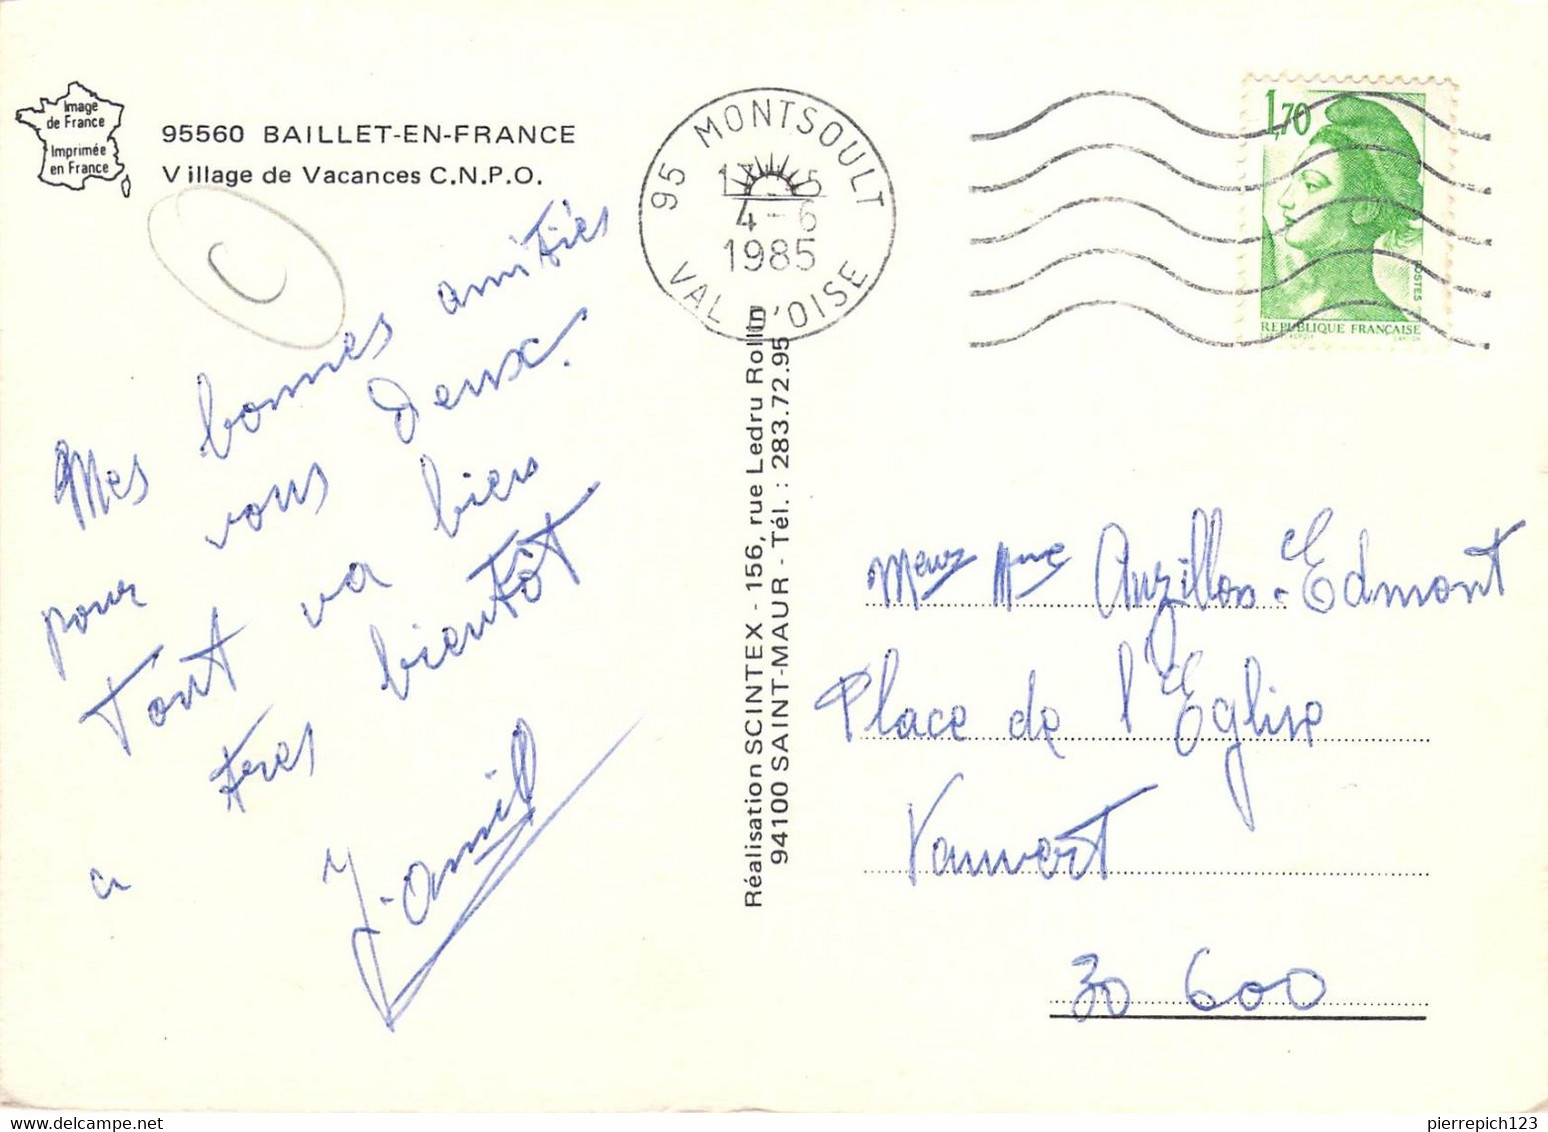 Image
de France
Imprimée
en France
95560 BAILLET-EN-FRANCE
Village de Vacances C.N.P.O.
C
Mes bonnes amitiés
pour vous deux.
Tout va bien
a tres bientôt
95 MONTSOULT
4-6
1985
VAL D'OISE
1,70
POSTES
REPUBLIQUE FRANÇAISE
Réalisation SCINTEX - 156, rue Ledru Rollin
94100 SAINT-MAUR - Tél. : 283.72.95
Mme Auzillon-Edmont
Place de l'Eglise
Vauvert
30 600
pierrepich123